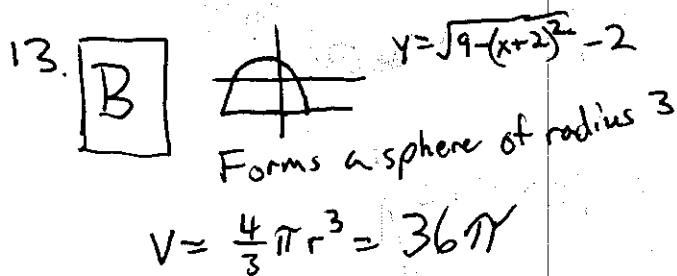 13. B y=√9-(x+2)² -2
Forms a sphere of radius 3
V = 4/3 πr³ = 36π